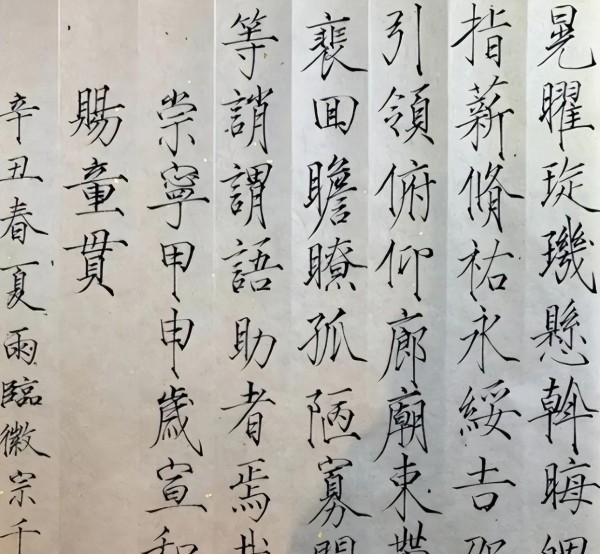 晃曜琁璣懸斡晦
指薪脩祐永綏吉
引領俯仰廊廟束帶
裵回瞻瞭孤陋寡聞
等誚謂語助者焉哉
崇寧甲申歲宣和
賜童貫
辛丑春夏雨臨徽宗千